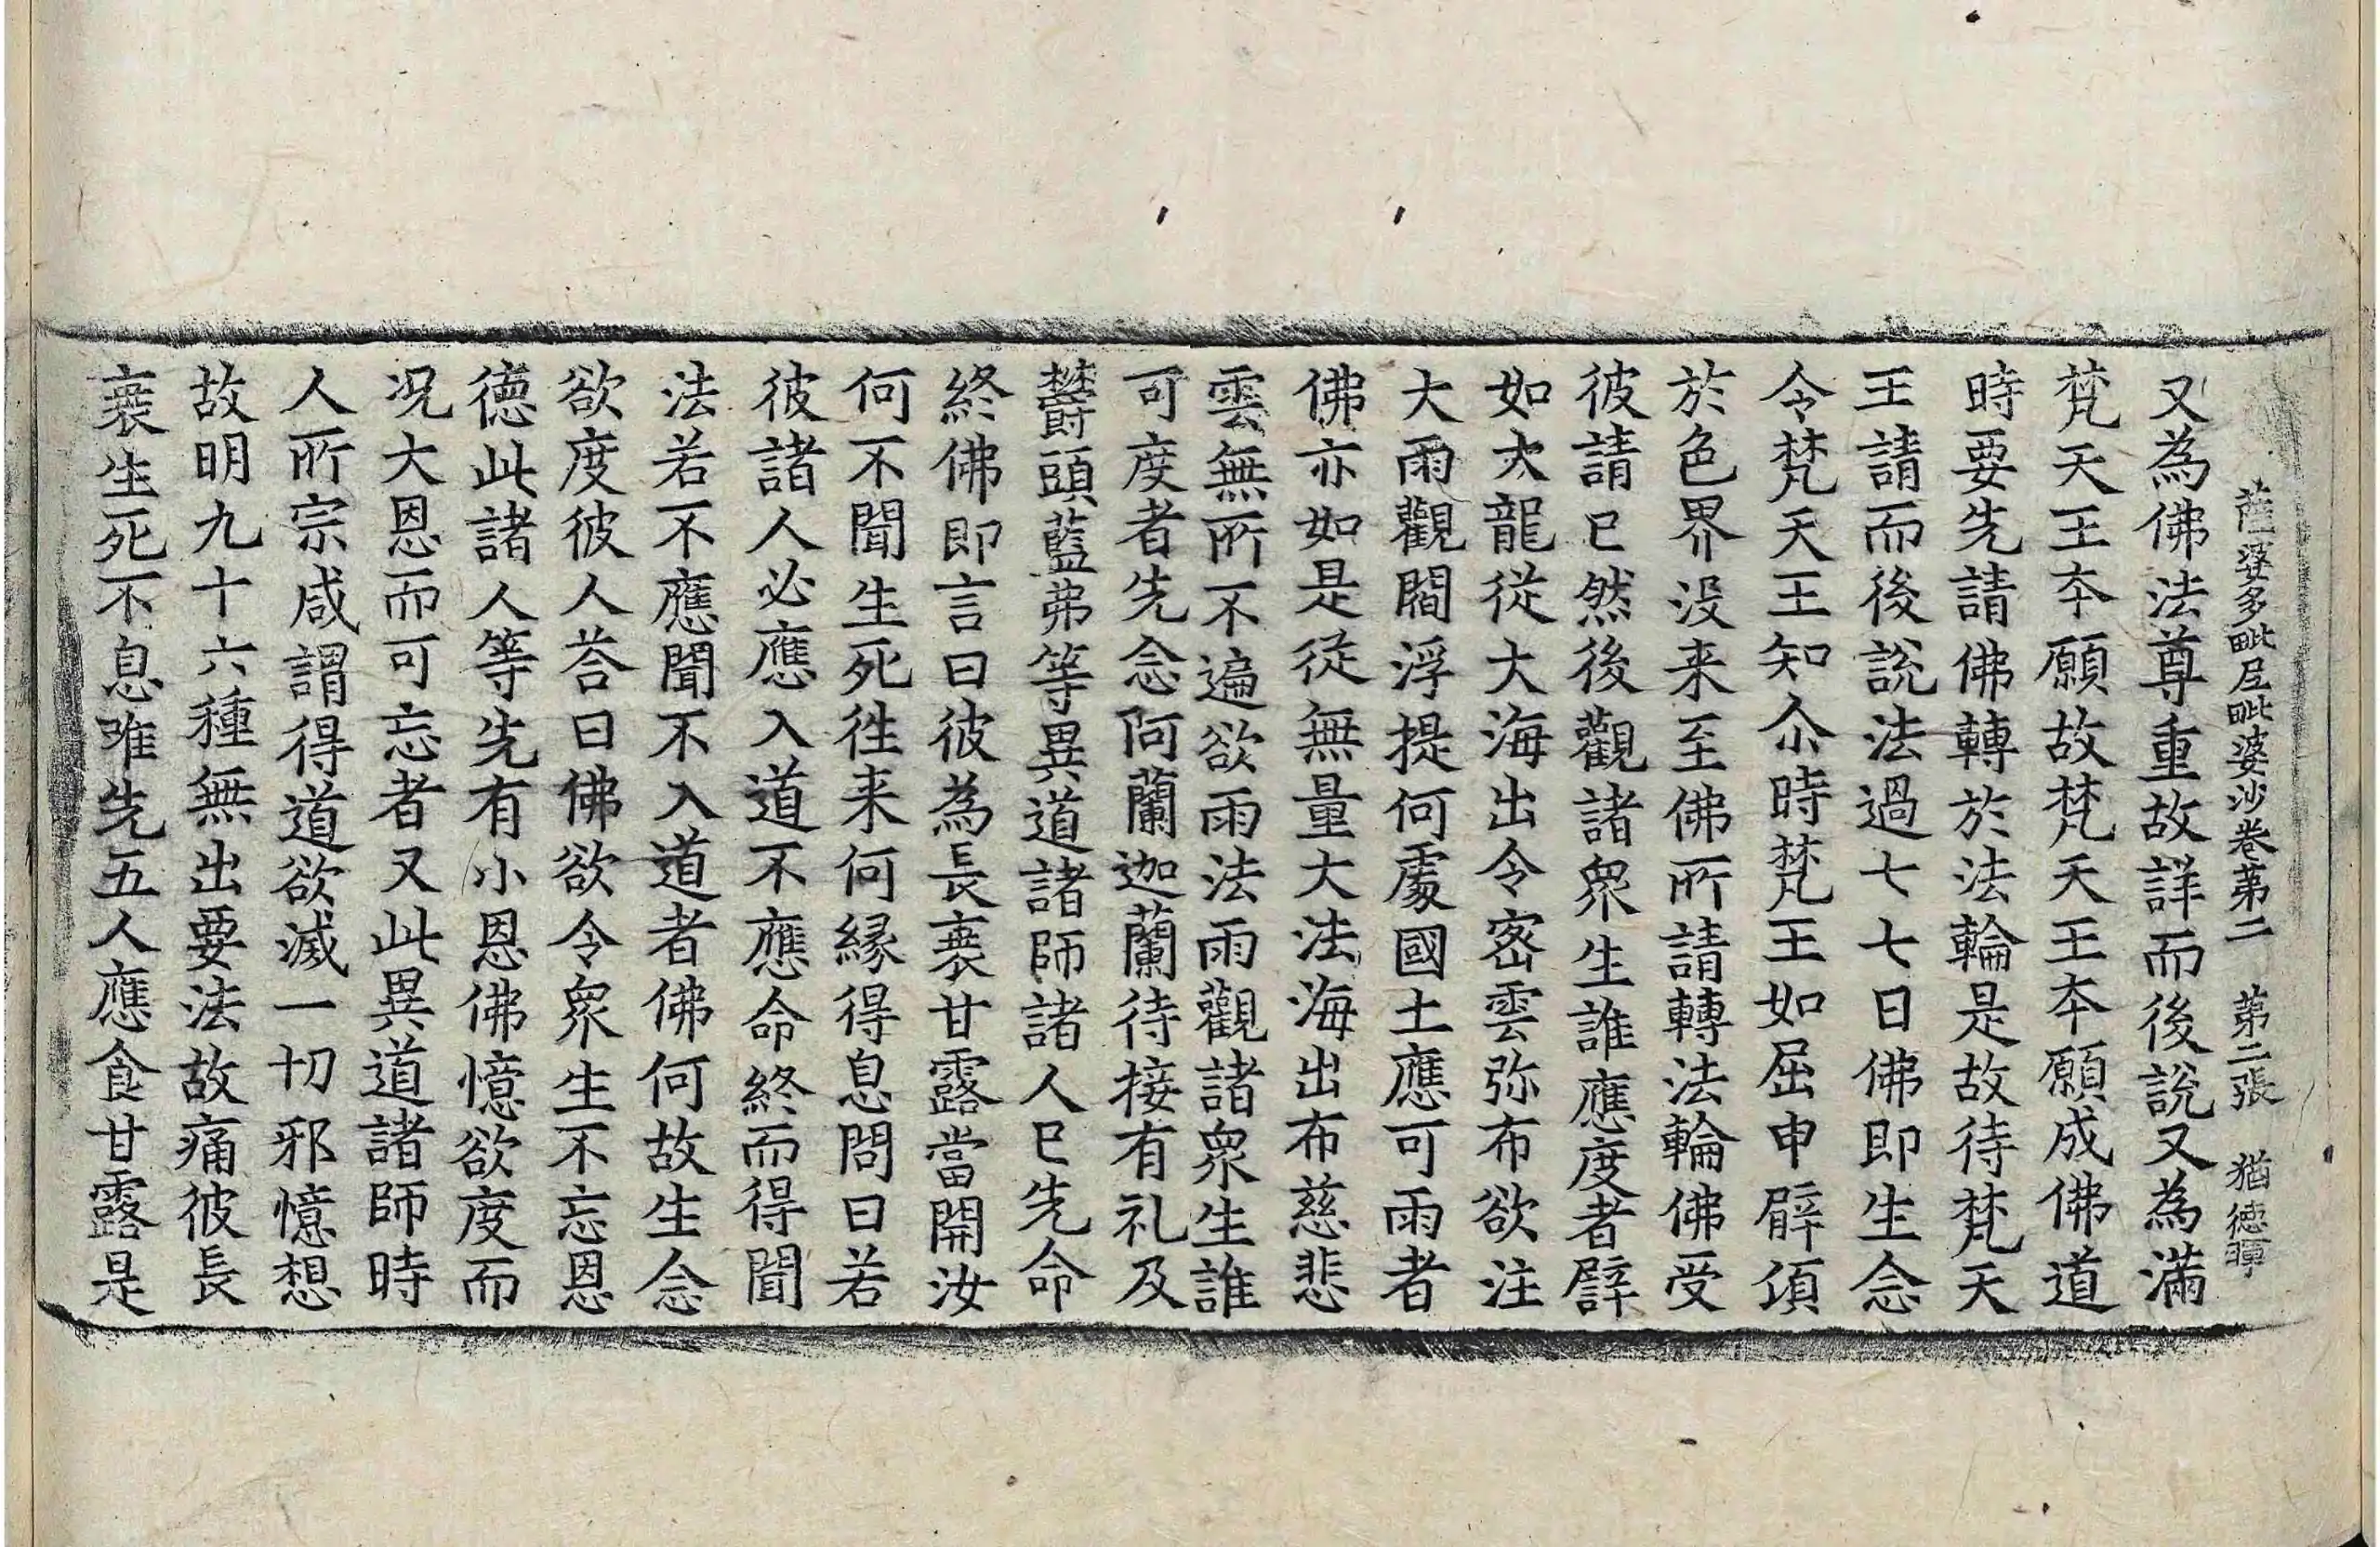 薩婆多毗尼毗婆沙卷第二 第二張 猶德暉
又為佛法尊重故詳而後說又為滿
梵天王本願故梵天王本願成佛道
時要先請佛轉於法輪是故待梵天
王請而後說法過七七日佛即生念
令梵天王知尒時梵王如屈申臂頃
於色界沒来至佛所請轉法輪佛受
彼請已然後觀諸眾生誰應度者譬
如大龍從大海出令密雲弥布欲注
大雨觀閻浮提何處國土應可雨者
佛亦如是從無量大法海出布慈悲
雲無所不遍欲雨法雨觀諸眾生誰
可度者先念阿蘭迦蘭待接有礼及
欝頭藍弗等異道諸師諸人已先命
終佛即言曰彼為長衰甘露當開汝
何不聞生死徃来何緣得息問曰若
彼諸人必應入道不應命終而得聞
法若不應聞不入道者佛何故生念
欲度彼人荅曰佛欲令眾生不忘恩
德此諸人等先有小恩佛憶欲度而
況大恩而可忘者又此異道諸師時
人所宗咸謂得道欲滅一切邪憶想
故明九十六種無出要法故痛彼長
衰生死不息唯先五人應食甘露是